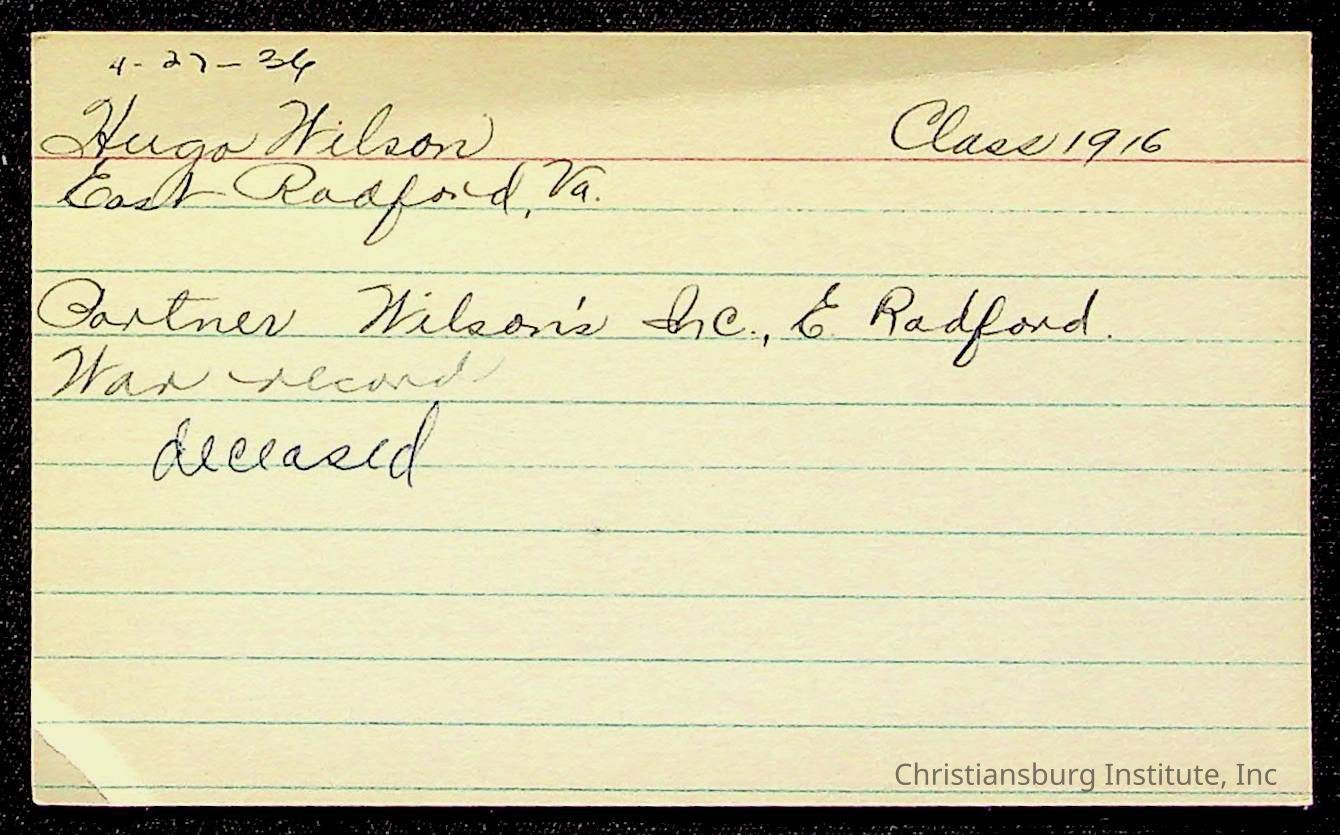 4-27-36
Hugo Wilson Class 1916
East Radford, Va.
Partner Wilson's Inc., E. Radford.
War record
deceased
Christiansburg Institute, Inc